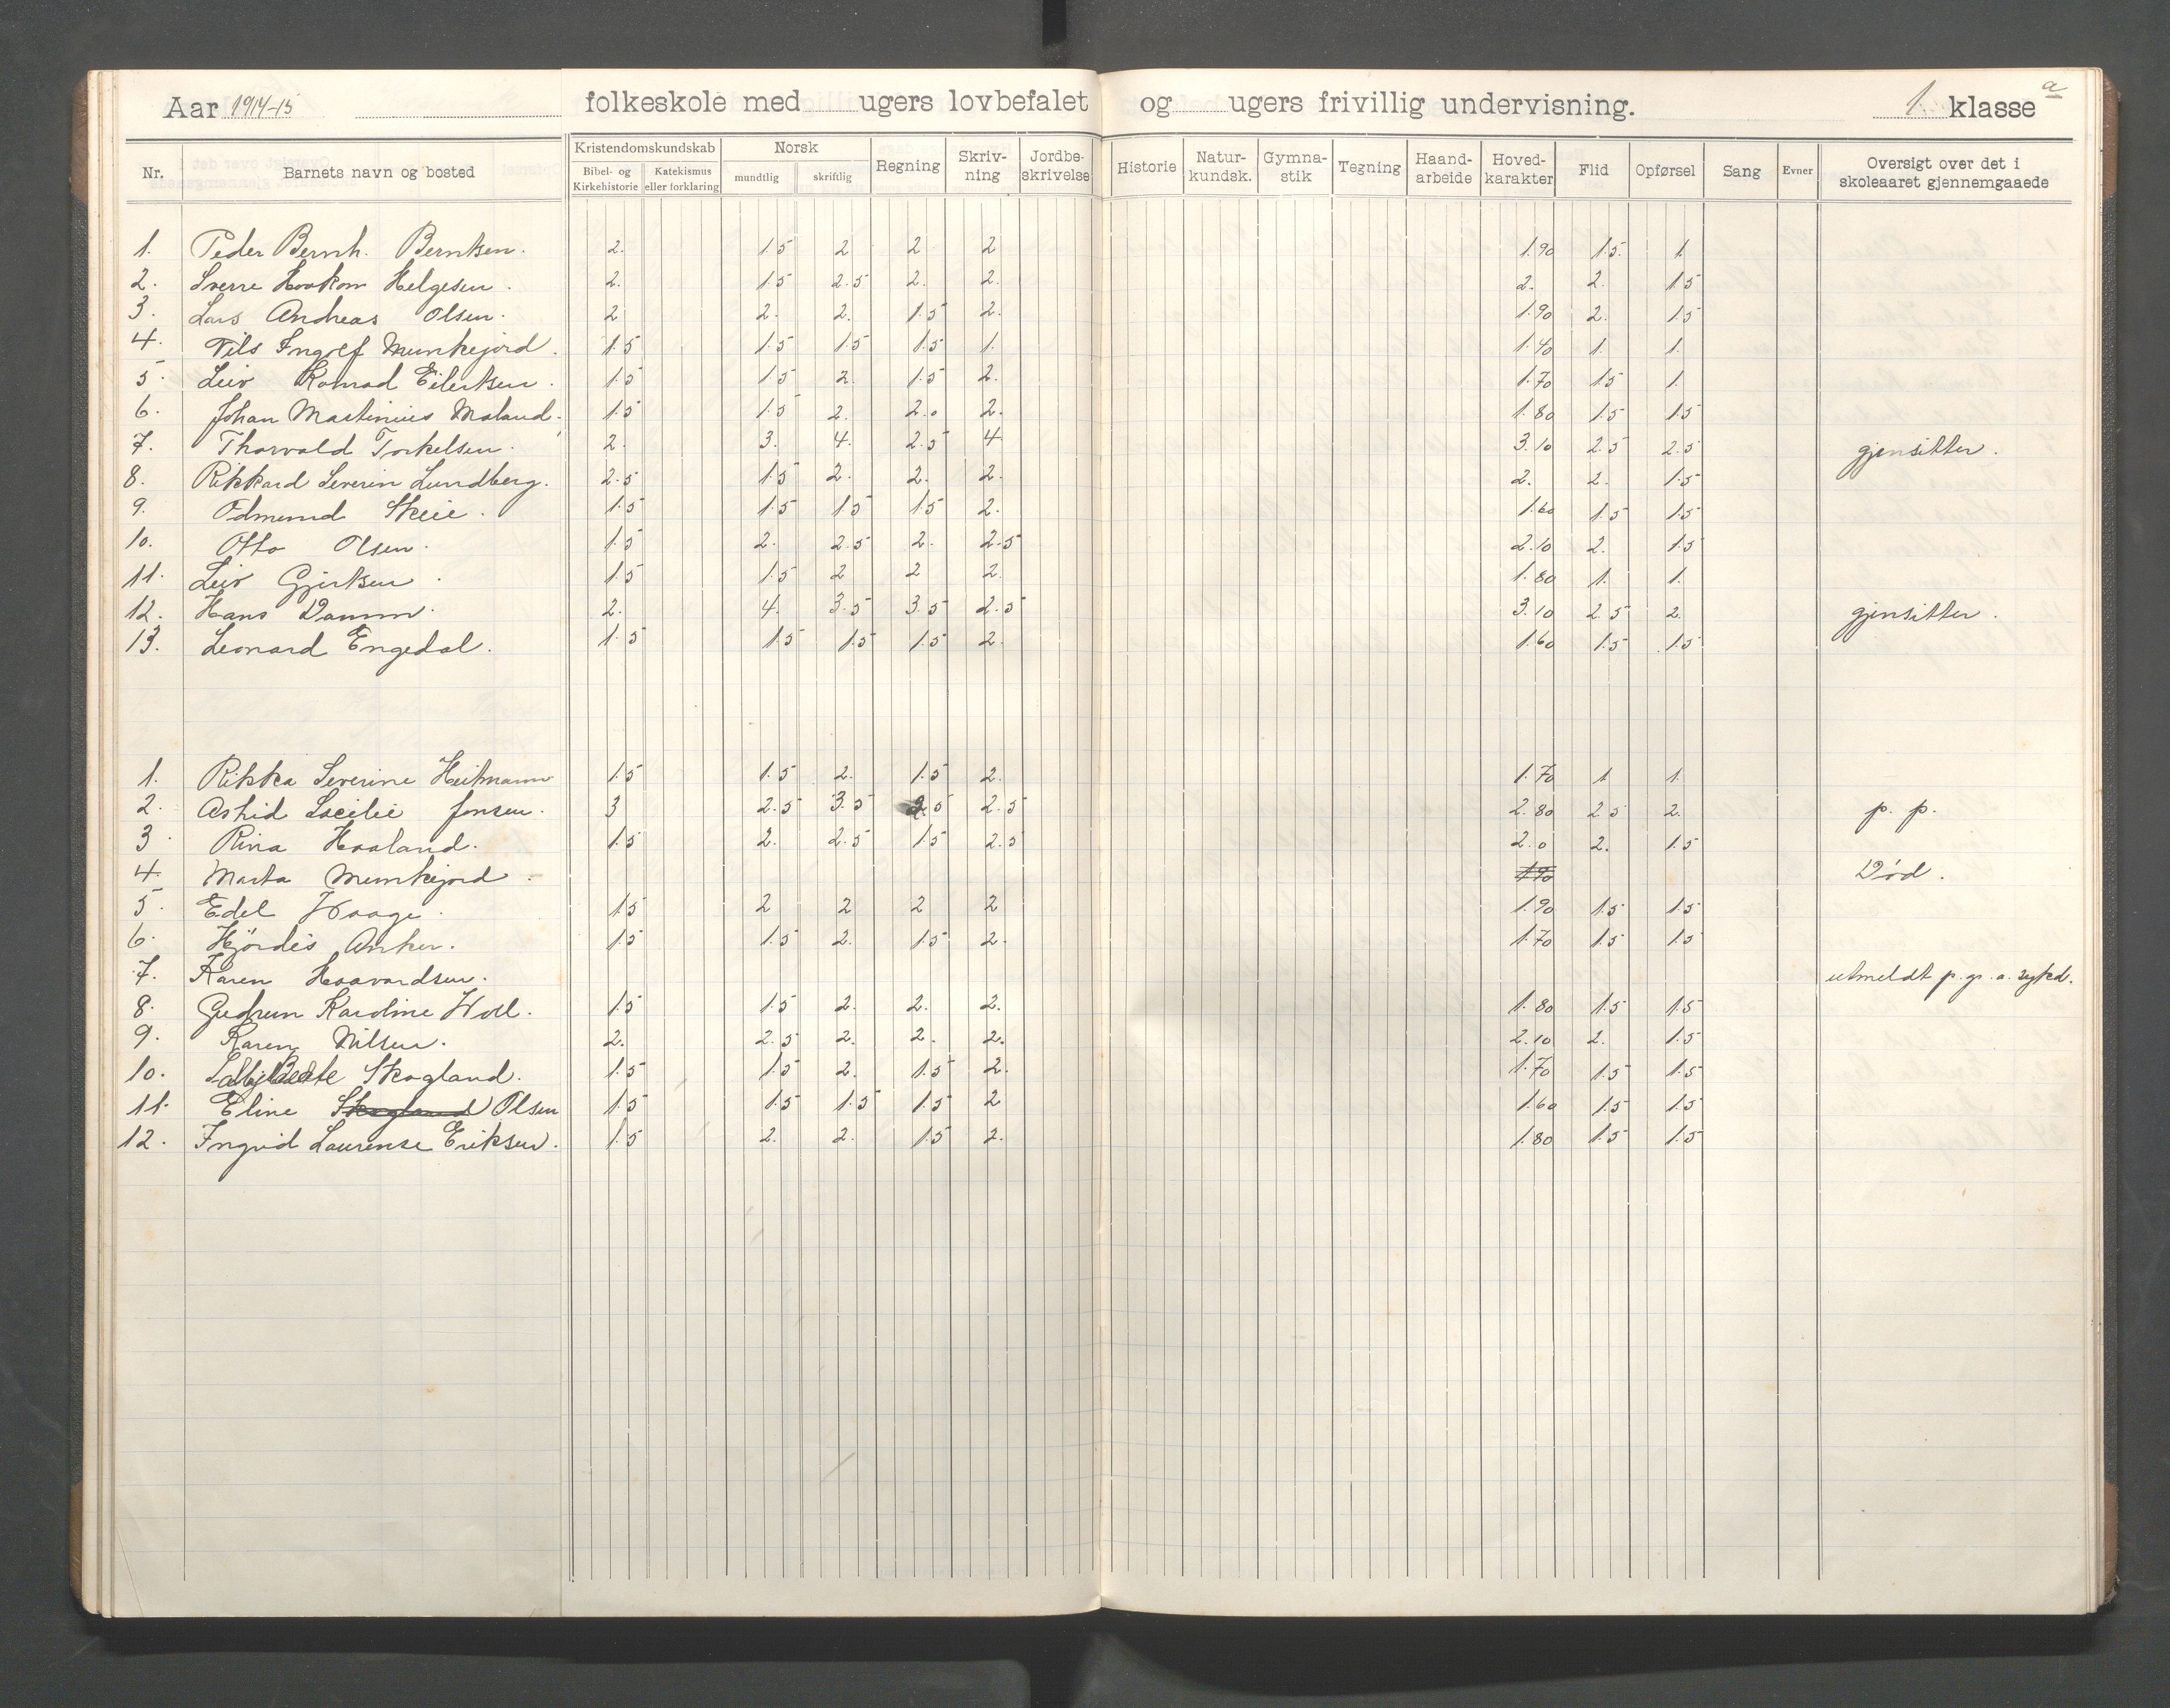 Aar 1914-15 folkeskole med ugers lovbefalet og ugers frivillig undervisning. 1. klasse a
Nr. Barnets navn og bosted Kristendomskundskab Bibel- og Kirkehistorie Katekismus eller forklaring Norsk mundtlig skriftlig Regning Skriv-ning Jordbe-skrivelse Historie Natur-kundsk. Gymna-stik Tegning Haand-arbeide Hoved-karakter Flid Opførsel Sang Evner Oversigt over det i skoleaaret gjennemgaaede
1. Peder Bernh. Berntsen. 2. 1.5 2 2 2 1.90 1.5. 1.
2. Sverre Haakon Helgesen. 2. 1.5 2.5 2. 2. 2. 2. 1.5
3. Lars Andreas Olsen. 2 2. 2. 1.5 2. 1.90 2. 1.5
4. Nils Ingolf Munkejord. 1.5 1.5 1.5 1.5 1. 1.40 1. 1.
5. Leiv Konrad Eilertsen. 1.5 1.5 2. 1.5 2. 1.70 1.5 1.
6. Johan Martinius Maland. 1.5 1.5 2. 2.0 2. 1.80 1.5 1.5
7. Thorvald Torkelsen. 2. 3. 4. 2.5 4. 3.10 2.5 2.5 gjensitter.
8. Rikkard Severin Lundberg. 2.5 1.5 2. 2. 2. 2. 2. 1.5
9. Edmund Skeie. 1.5 1.5 1.5 1.5 2. 1.60 1.5 1.5
10. Otto Olsen. 1.5 2. 2.5 2. 2.5 2.10 2. 1.5
11. Leiv Gjertsen. 1.5 1.5 2 2 2. 1.80 1. 1.
12. Hans Damm. 2. 4. 3.5 3.5 2.5 3.10 2.5 2. gjensitter.
13. Leonard Engedal. 1.5 1.5 1.5 1.5 2. 1.60 1.5 1.5
1. Rikka Severine Heitmann 1.5 1.5 2. 1.5 2. 1.70 1 1.
2. Astrid Cecilie Jensen. 3 2.5 3.5 2.5 2.5 2.80 2.5 2. p. p.
3. Rina Haaland. 1.5 2. 2.5 1.5 2.5 2.0 2. 1.5
4. Marta Munkejord. 1.90 Død.
5. Edel Haage. 1.5 2 2 2 2 1.90 1.5 1.5
6. Hjørdis Anker. 1.5 1.5 2. 1.5 2. 1.70 1.5 1.5
7. Karen Haavardsen. utmeldt p. gr. a. sykd.
8. Gudrun Karoline Woll. 1.5 1.5 2. 2. 2. 1.80 1.5 1.5
9. Karen Nilsen. 2. 2.5 2. 2. 2. 2.10 2. 1.5
10. Skogland. 1.5 1.5 2. 1.5 2. 1.70 1.5 1.5
11. Eline Skogland Olsen 1.5 1.5 1.5 1.5 2 1.60 1.5 1.5
12. Ingrid Laurense Eriksen. 1.5 2. 2. 1.5 2. 1.80 1.5 1.5